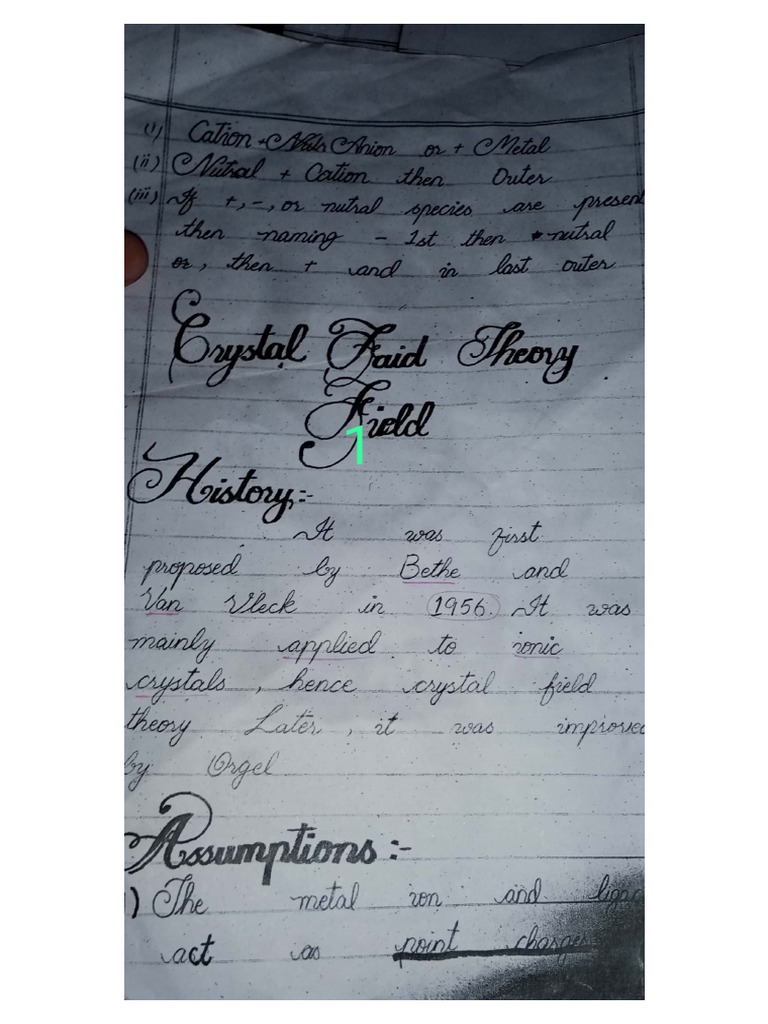 (i) Cation + Anion or + Metal
(ii) Nutral + Cation then Outer
(iii) If +, -, or nutral species are present
then naming - 1st then nutral
or, then + and in last outer
Crystal Faid Theory
Field
1
History:-
It was first
proposed by Bethe and
Van Vleck in 1956. It was
mainly applied to ionic
crystals, hence crystal field
theory Later, it was improved
by Orgel
Assumptions:-
1) The metal ion and
act as point charges